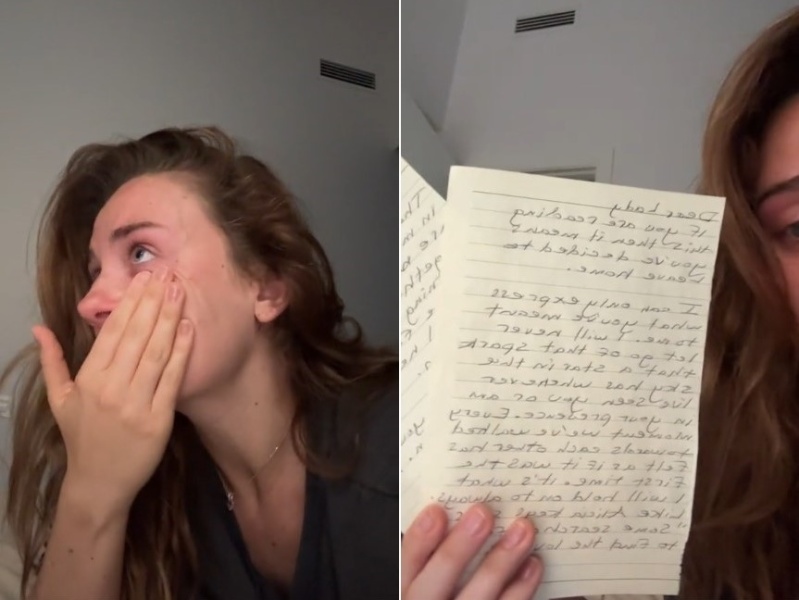 Dear Lady
If you are reading
this then it means
you've decided to
leave home.
I can only express
what you've meant
to me. I will never
let go of that spark
that a star in the
sky has whenever
I've seen you or am
in your presence. Every
moment we've walked
towards each other has
felt as if it was the
First time. it's what
I will hold on to always.
Like Alicia Keys
"Some search
to Find the